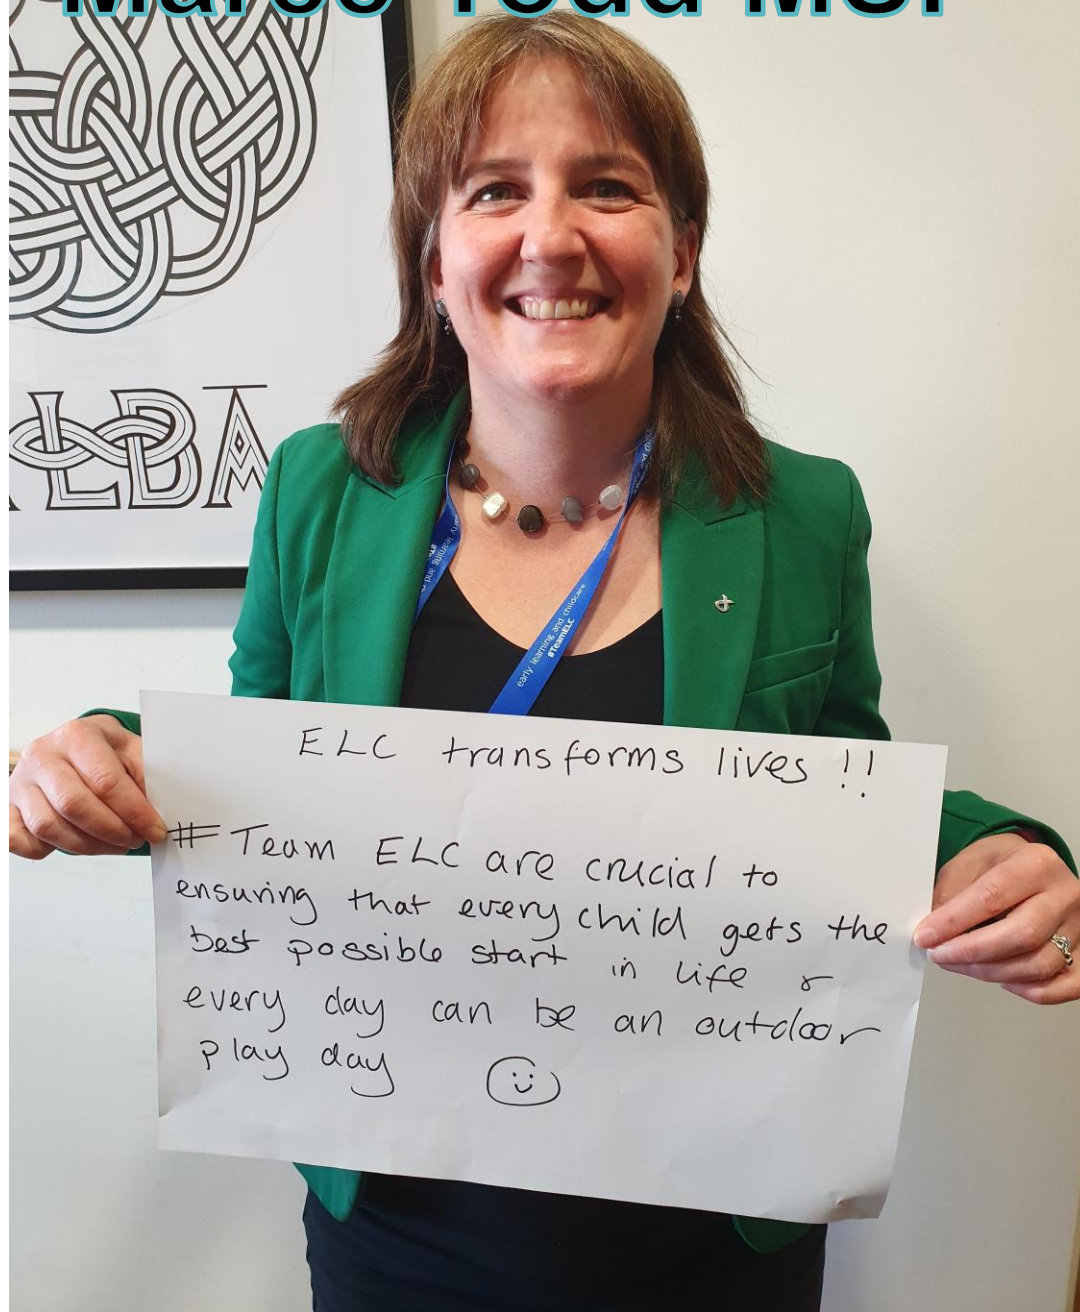 Maree Todd MSP
ALBA
early learning and childcare
#TeamELC
ELC transforms lives !!
# Team ELC are crucial to
ensuring that every child gets the
best possible start in life &
every day can be an outdoor
play day